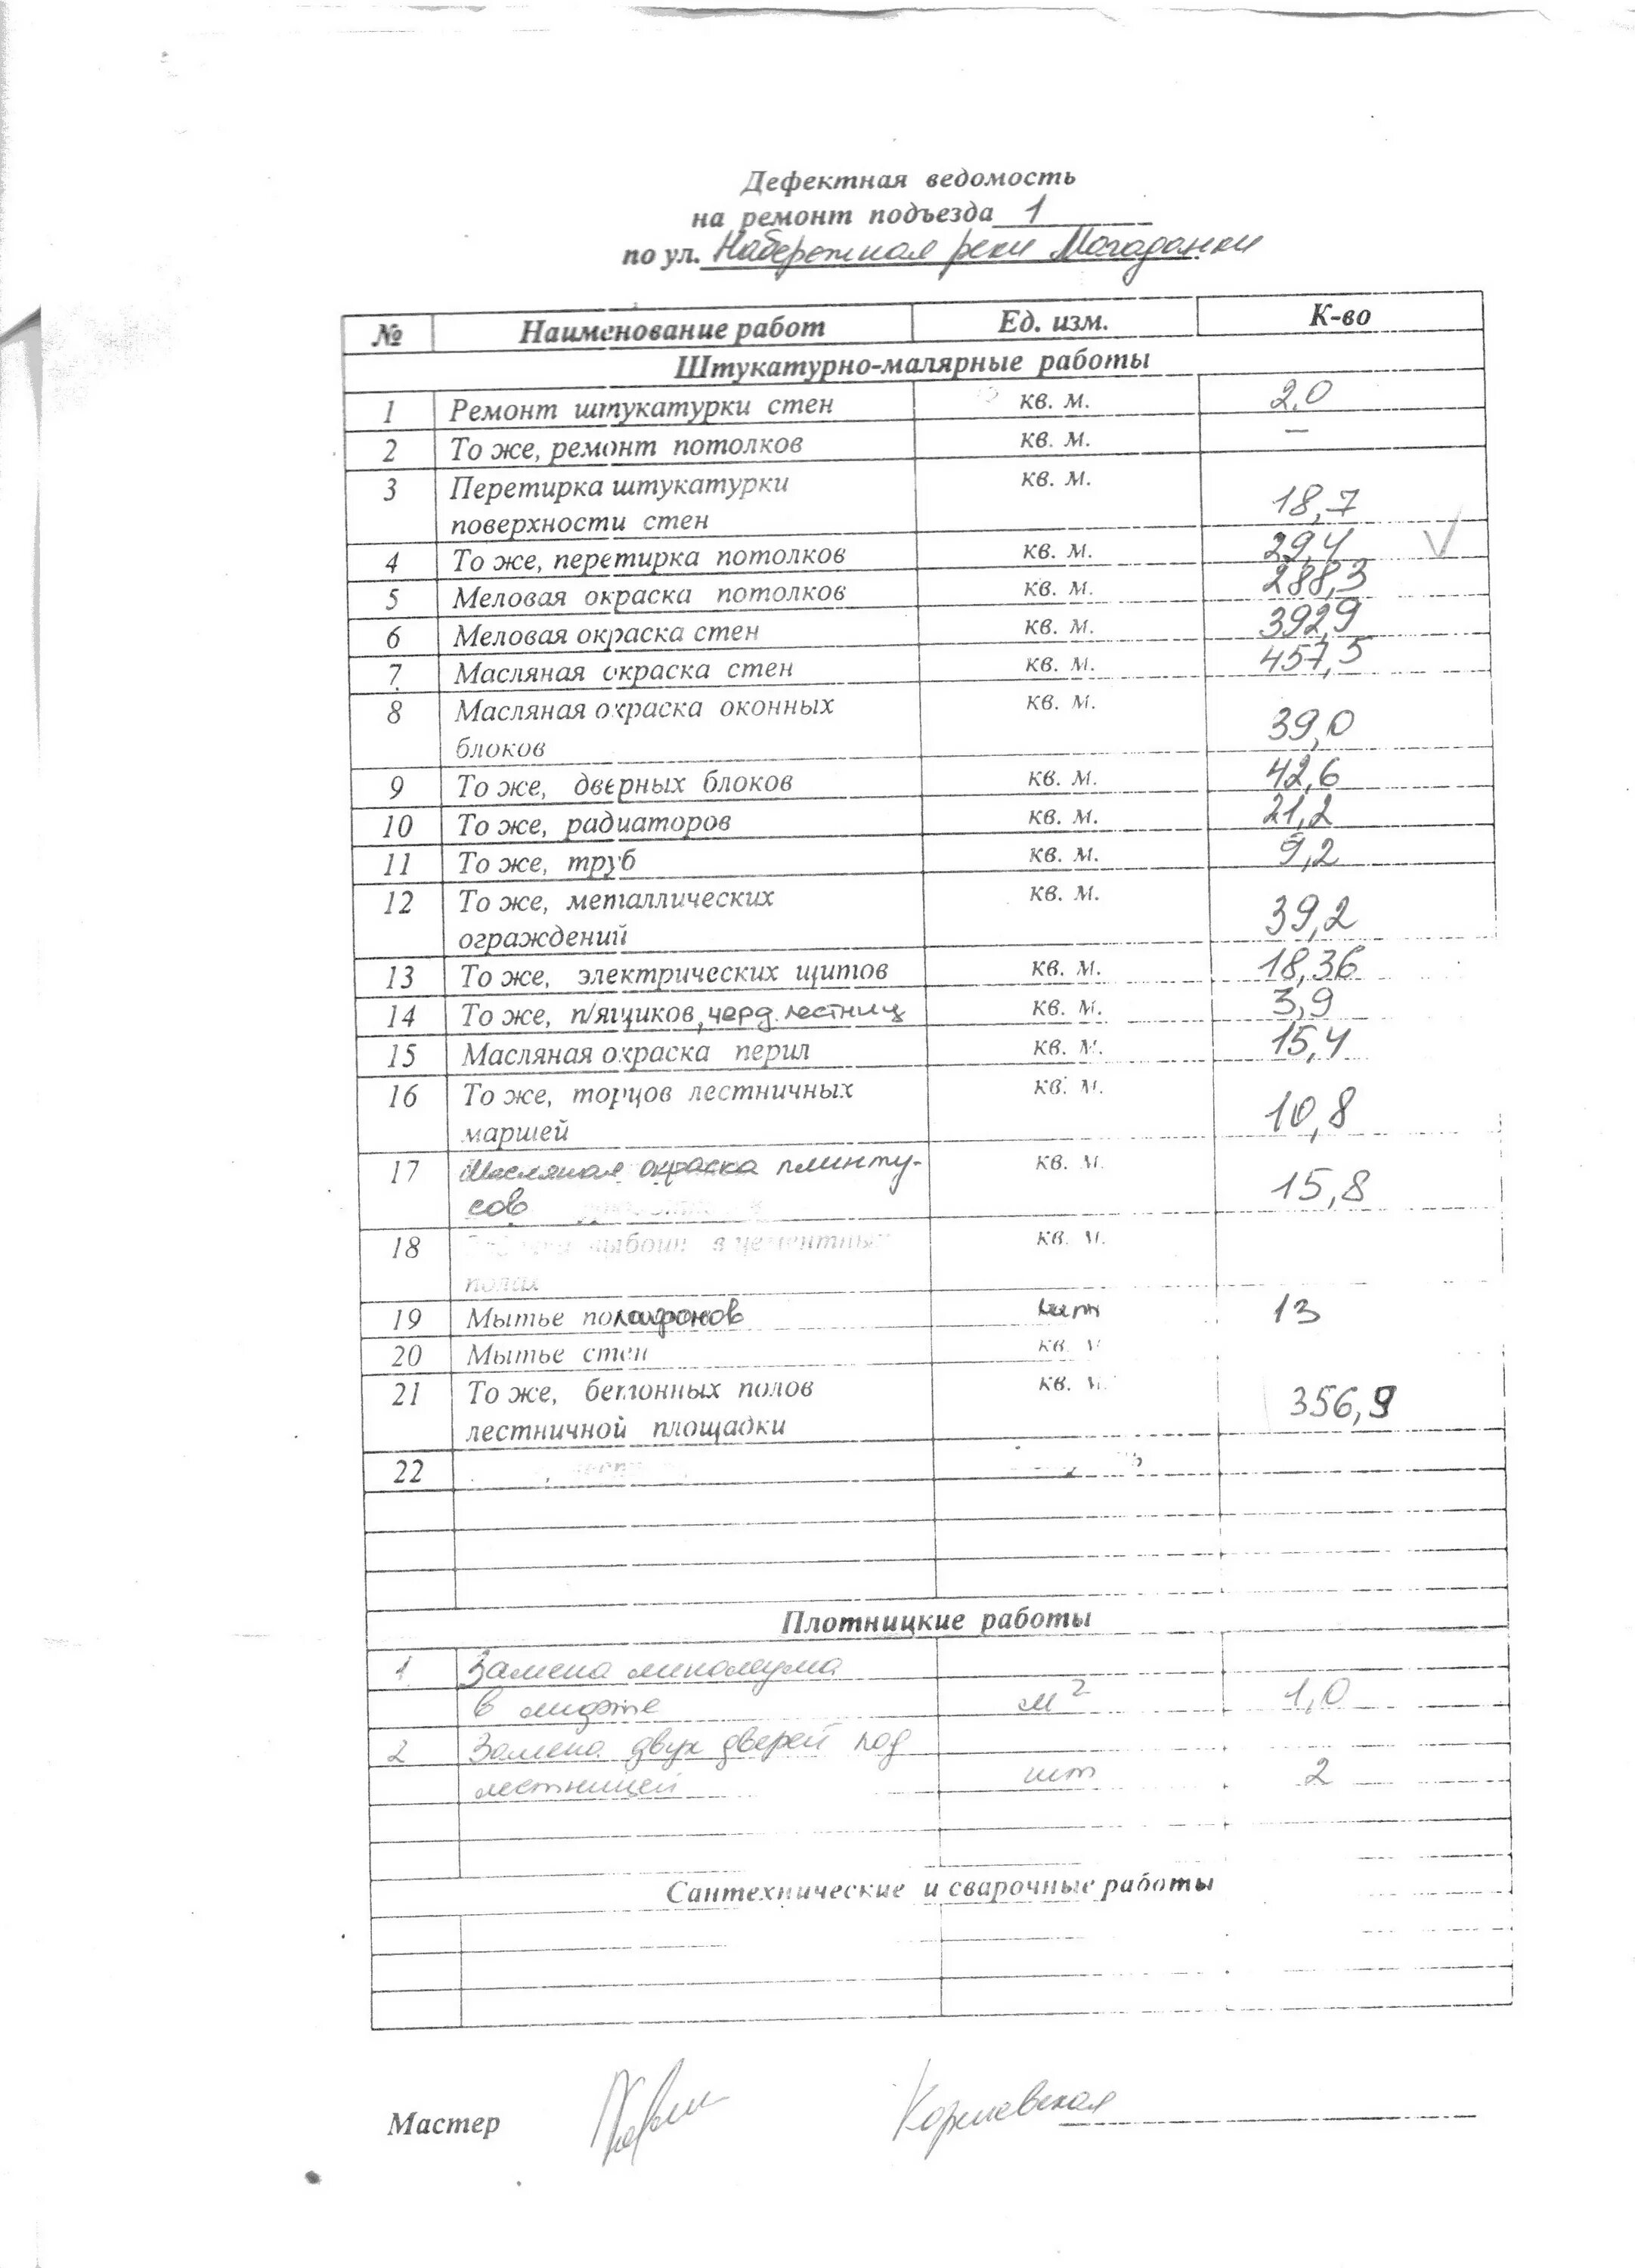 Дефектная ведомость
на ремонт подъезда 1
по ул. Набережная реки Магаданки
№ Наименование работ Ед. изм. К-во
Штукатурно-малярные работы
1 Ремонт штукатурки стен кв. м. 2,0
2 То же, ремонт потолков кв. м. –
3 Перетирка штукатурки кв. м.
поверхности стен 18,7
4 То же, перетирка потолков кв. м. 29,4 V
5 Меловая окраска потолков кв. м. 288,3
6 Меловая окраска стен кв. м. 392,9
7 Масляная окраска стен кв. м. 457,5
8 Масляная окраска оконных кв. м.
блоков 39,0
9 То же, дверных блоков кв. м. 42,6
10 То же, радиаторов кв. м. 21,2
11 То же, труб кв. м. 9,2
12 То же, металлических кв. м.
ограждений 39,2
13 То же, электрических щитов кв. м. 18,36
14 То же, п/ящиков, черд. лестниц кв. м. 3,9
15 Масляная окраска перил кв. м. 15,4
16 То же, торцов лестничных кв. м.
маршей 10,8
17 Масляная окраска плинту- кв. м.
сов 15,8
18 выбоин в цементных кв. м.
полах
19 Мытье полафонов шт 13
20 Мытье стен кв. м
21 То же, бетонных полов кв. м.
лестничной площадки 356,9
22
Плотницкие работы
1 Замена линолеума
в лифте м² 1,0
2 Замена двух дверей под
лестницей шт 2
Сантехнические и сварочные работы
Мастер